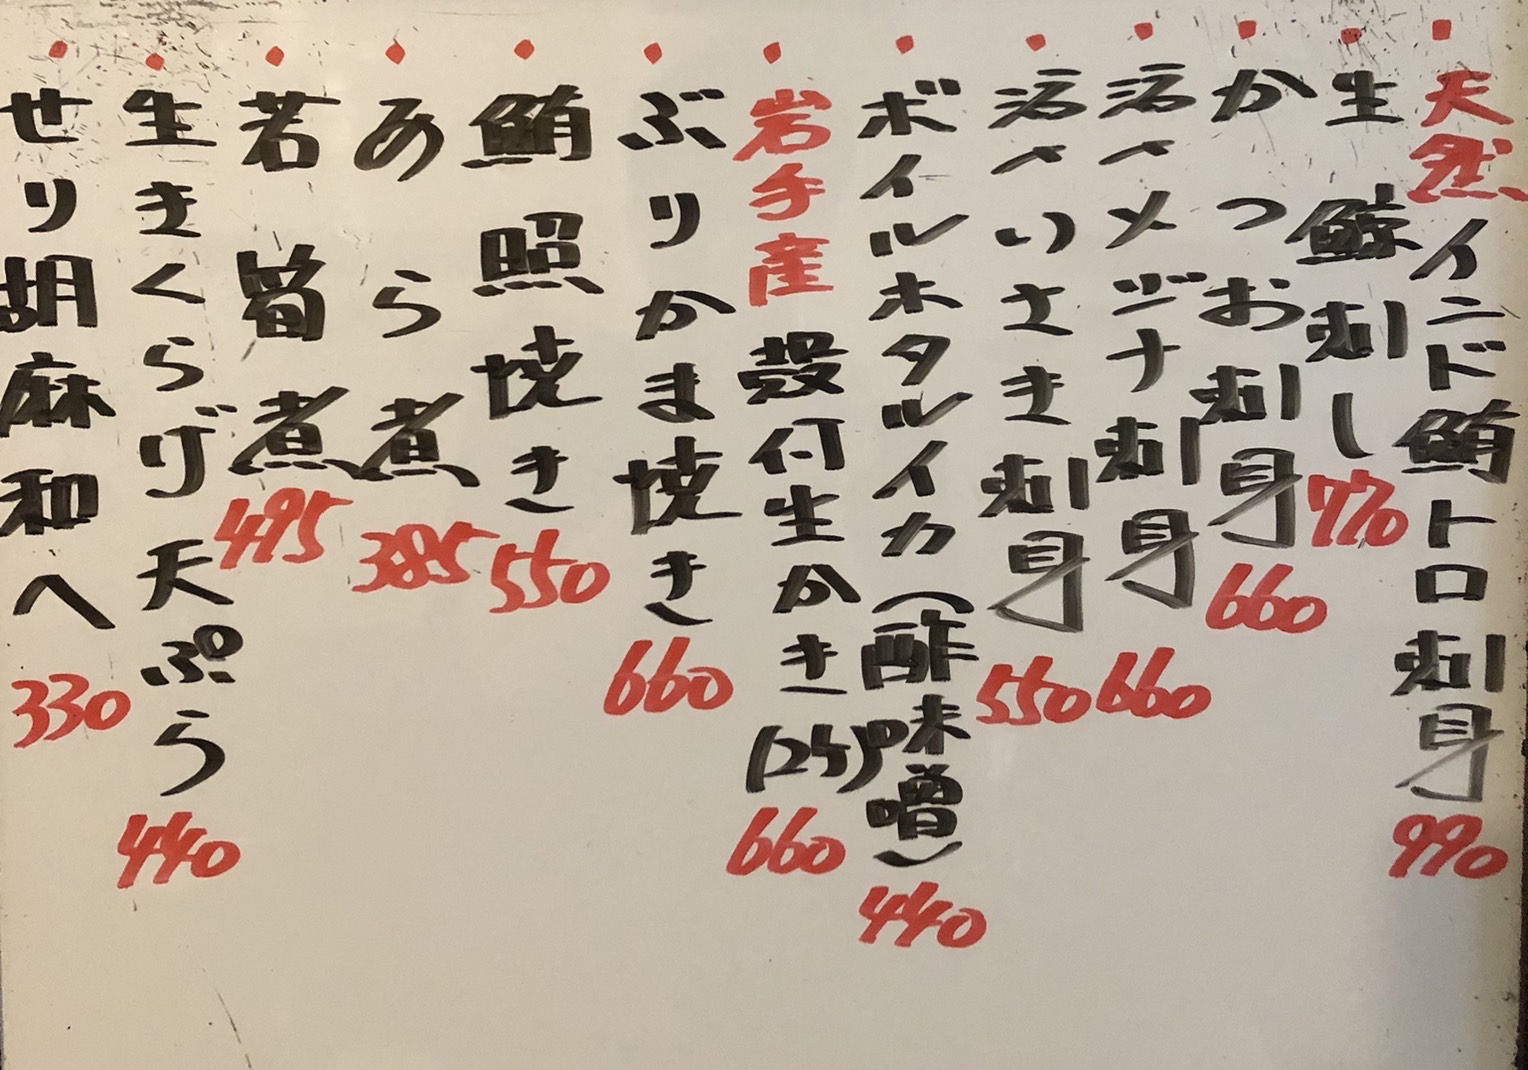 天然インド鮪トロ刺身 990
生鯨刺し 770
かつお刺身 660
活〆メジナ刺身 660
活〆いさき刺身 550
ボイルホタルイカ(酢味噌) 440
岩手産殻付生かき(2ケ) 660
ぶりかま焼き 660
鮪照焼き 550
あら煮 385
若筍煮 495
生きくらげ天ぷら 440
せり胡麻和へ 330